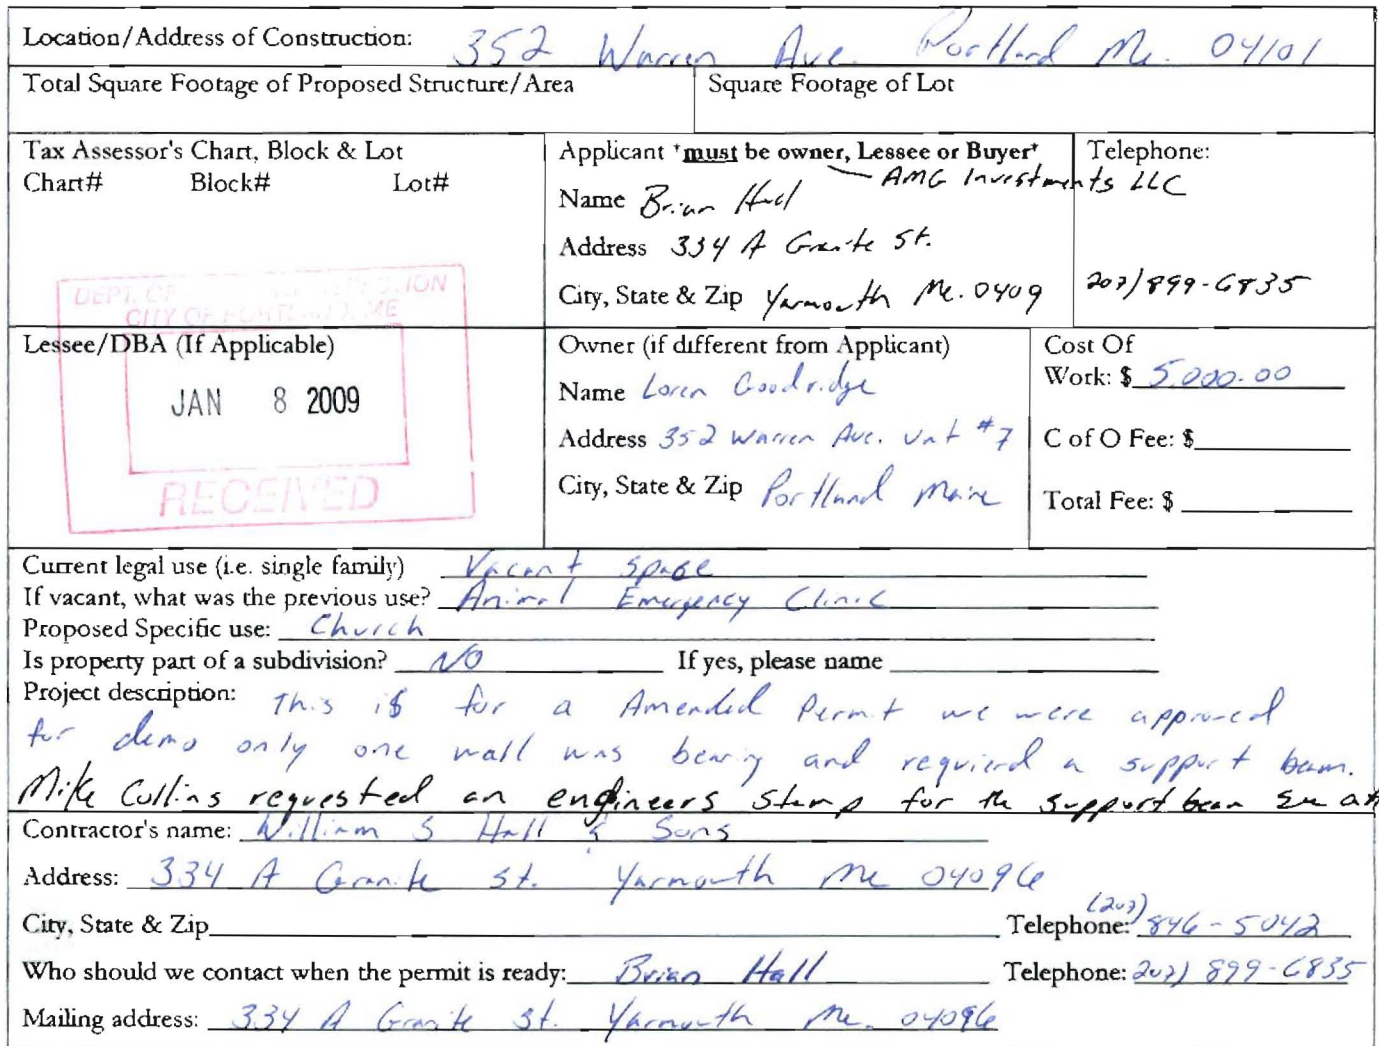 Location/Address of Construction: 352 Warren Ave. Portland Me. 04101
Total Square Footage of Proposed Structure/Area
Square Footage of Lot
Tax Assessor's Chart, Block & Lot
Chart# Block# Lot#
Applicant *must be owner, Lessee or Buyer*
AMG Investments LLC
Name Brian Hall
Address 334 A Granite St.
City, State & Zip Yarmouth Me. 0409
Telephone:
207)899-6835
DEPT. OF
CITY OF PORTLAND, ME
JAN 8 2009
RECEIVED
Lessee/DBA (If Applicable)
Owner (if different from Applicant)
Name Loren Goodridge
Address 352 Warren Ave. Unit #7
City, State & Zip Portland Maine
Cost Of
Work: $ 5,000.00
C of O Fee: $
Total Fee: $
Current legal use (i.e. single family) Vacant space
If vacant, what was the previous use? Animal Emergency Clinic
Proposed Specific use: Church
Is property part of a subdivision? NO If yes, please name
Project description: This is for a Amended Permit we were approved
for demo only one wall was bearing and requierd a support beam.
Mike Collins requested an engineers stamp for the support beam see att
Contractor's name: William S Hall & Sons
Address: 334 A Granite St. Yarmouth Me 04096
City, State & Zip Telephone: (207) 846-5042
Who should we contact when the permit is ready: Brian Hall Telephone: 207) 899-6835
Mailing address: 334 A Granite St. Yarmouth Me. 04096